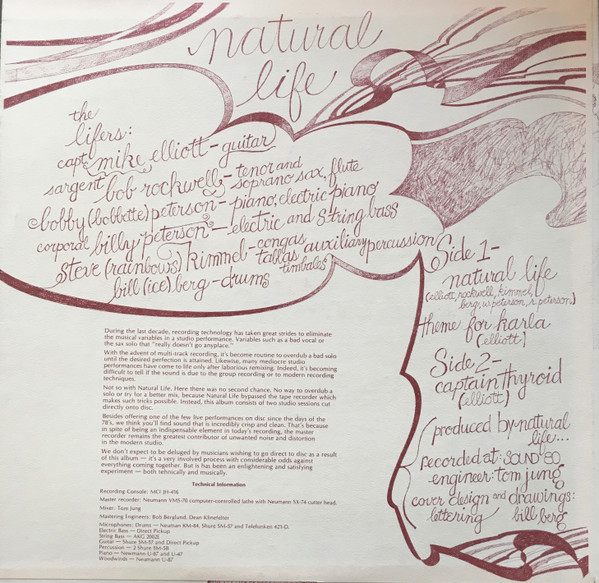 natural
life
the
lifers:
capt. mike elliott - guitar
sargent bob rockwell - tenor and
soprano sax, flute
bobby (bobbette) peterson - piano, electric piano
corporal billy peterson - electric and string bass
steve (rainbows) kimmel - congas
tablas auxiliary percussion
timbales
bill (ice) berg - drums
Side 1 -
natural life
(elliott, rockwell, kimmel,
berg, w. peterson, r. peterson)
theme for karla
(elliott)
Side 2 -
captain thyroid
(elliott)
produced by natural
life...
recorded at: SOUND 80
engineer: tom jung
cover design and drawings:
lettering bill berg
During the last decade, recording technology has taken great strides to eliminate
the musical variables in a studio performance. Variables such as a bad vocal or
the sax solo that "really doesn't go anyplace."
With the advent of multi-track recording, it's become routine to overdub a bad solo
until the desired perfection is attained. Likewise, many mediocre studio
performances have come to life only after laborious remixing. Indeed, it's becoming
difficult to tell if the sound is due to the group recording or to modern recording
techniques.
Not so with Natural Life. Here there was no second chance. No way to overdub a
solo or try for a better mix, because Natural Life bypassed the tape recorder which
makes such tricks possible. Instead, this album consists of two studio sessions cut
directly onto disc.
Besides offering one of the few live performances on disc since the days of the
78's, we think you'll find sound that is incredibly crisp and clean. That's because
in spite of being an indispensable element in today's recording, the master
recorder remains the greatest contributor of unwanted noise and distortion
in the modern studio.
We don't expect to be deluged by musicians wishing to go direct to disc as a result
of this album — it's a very involved process with considerable odds against
everything coming together. But is has been an enlightening and satisfying
experiment — both tehnically and musically.
Technical Information
Recording Console: MCI JH-416
Master recorder: Neumann VMS-70 computer-controlled lathe with Neumann SX-74 cutter head.
Mixer: Tom Jung
Mastering Engineers: Bob Berglund, Dean Klinefelter
Microphones: Drums — Neuman KM-84, Shure SM-57 and Telefunken 423-D.
Electric Bass — Direct Pickup
String Bass — AKG 202E
Guitar — Shure SM-57 and Direct Pickup
Percussion — 2 Shure SM-58
Piano — Neumann U-87 and U-47
Woodwinds — Neumann U-87